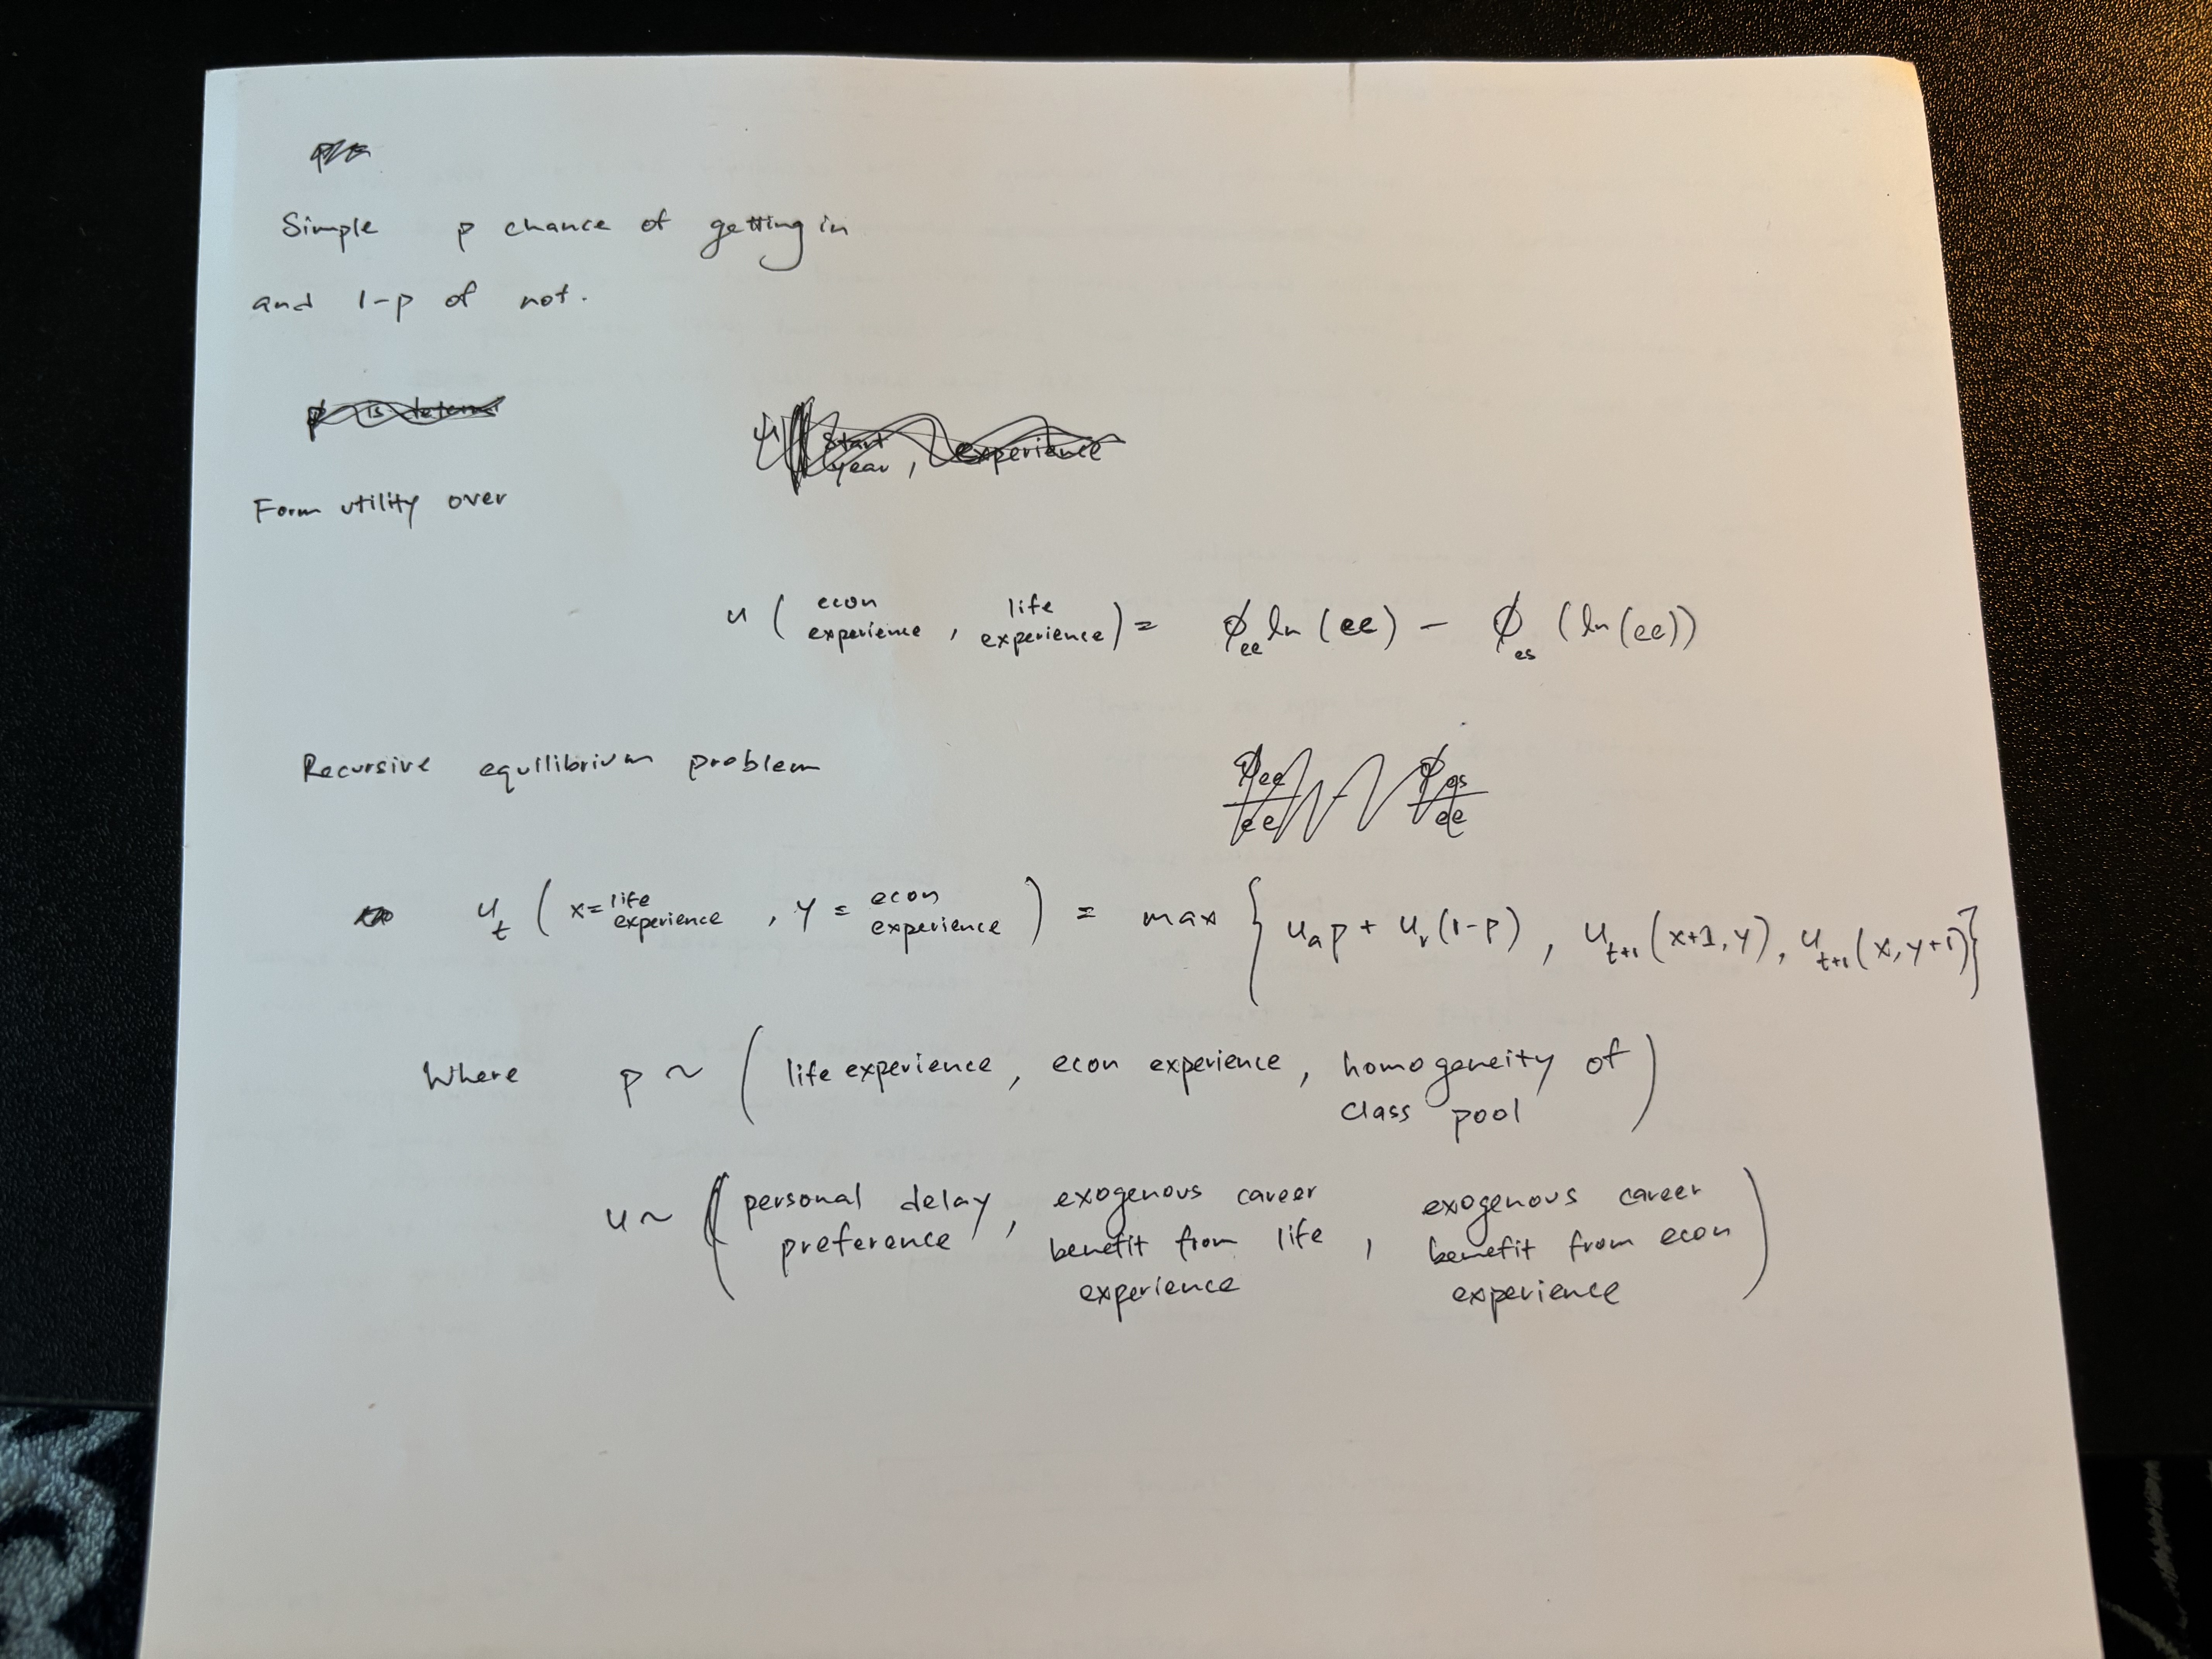 Simple p chance of getting in
and 1-p of not.
p is determi
u( start year, experience
Form utility over
u ( econ experience , life experience ) = ϕ_ee ln (ee) - ϕ_es (ln(ee))
Recursive equilibrium problem
ϕee/ee ϕes/ee
u_t ( x = life experience , y = econ experience ) = max { u_a p + u_r (1-p) , u_t+1 (x+1, y), u_t+1 (x, y+1) }
Where p ~ ( life experience , econ experience , homogeneity of class pool )
u ~ ( personal delay preference , exogenous career benefit from life experience , exogenous career benefit from econ experience )